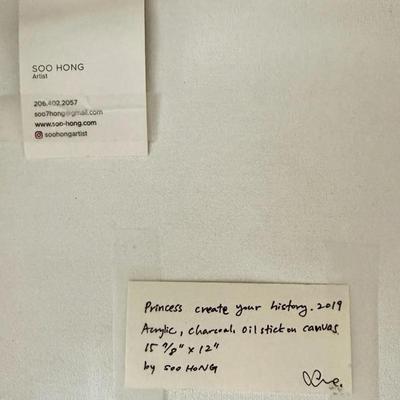 SOO HONG
Artist
206.402.2057
soo7hong@gmail.com
www.soo-hong.com
soohongartist
Princess create your history. 2019
Acrylic, charcoal, oil stick on canvas.
15 7/8" x 12"
by SOO HONG